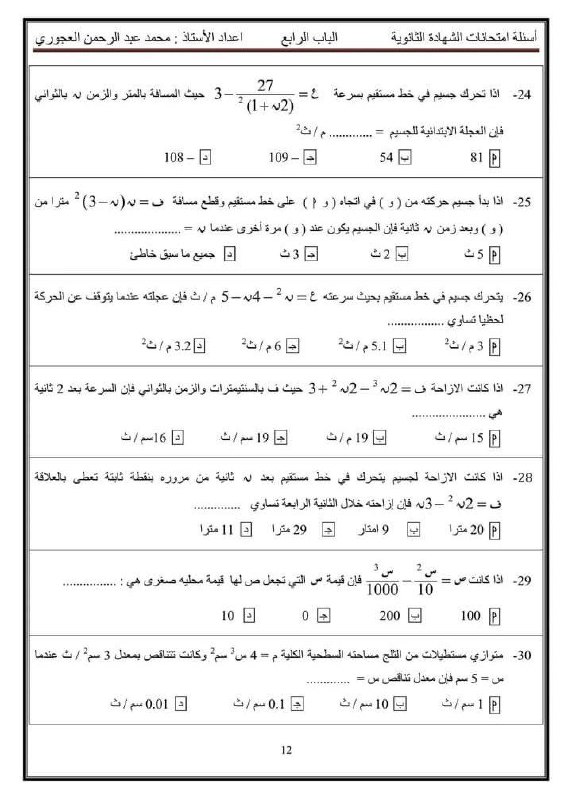 أسئلة امتحانات الشهادة الثانوية الباب الرابع اعداد الأستاذ : محمد عبد الرحمن العجوري
24- اذا تحرك جسيم في خط مستقيم بسرعة ع = 27/(2ن + 1)² − 3 حيث المسافة بالمتر والزمن ن بالثواني
فإن العجلة الابتدائية للجسيم = ............. م / ث²
أ 81 ب 54 جـ − 109 د − 108
25- اذا بدأ جسيم حركته من ( و ) في اتجاه ( و أ ) على خط مستقيم وقطع مسافة ف = ن(ن − 3)² مترا من
( و ) وبعد زمن ن ثانية فإن الجسيم يكون عند ( و ) مرة أخرى عندما ن = ...................
أ 5 ث ب 2 ث جـ 3 ث د جميع ما سبق خاطئ
26- يتحرك جسيم في خط مستقيم بحيث سرعته ع = ن² − 4ن − 5 م / ث فإن عجلته عندما يتوقف عن الحركة
لحظيا تساوي ................
أ 3 م / ث² ب 5.1 م / ث² جـ 6 م / ث² د 3.2 م / ث²
27- اذا كانت الازاحة ف = 2ن³ − 2ن² + 3 حيث ف بالسنتيمترات والزمن بالثواني فإن السرعة بعد 2 ثانية
هي .....................
أ 15 سم / ث ب 19 م / ث جـ 19 سم / ث د 16سم / ث
28- اذا كانت الازاحة لجسيم يتحرك في خط مستقيم بعد ن ثانية من مروره بنقطة ثابتة تعطى بالعلاقة
ف = 2ن² − 3ن فإن إزاحته خلال الثانية الرابعة تساوي .............
أ 20 مترا ب 9 امتار جـ 29 مترا د 11 مترا
29- اذا كانت ص = س²/10 − س³/1000 فإن قيمة س التي تجعل ص لها قيمة محليه صغرى هي : ...............
أ 100 ب 200 جـ 0 د 10
30- متوازي مستطيلات من الثلج مساحته السطحية الكلية م = 4 س³ سم² وكانت تتناقص بمعدل 3 سم² / ث عندما
س = 5 سم فإن معدل تناقص س = ............
أ 1 سم / ث ب 10 سم / ث جـ 0.1 سم / ث د 0.01 سم / ث
12